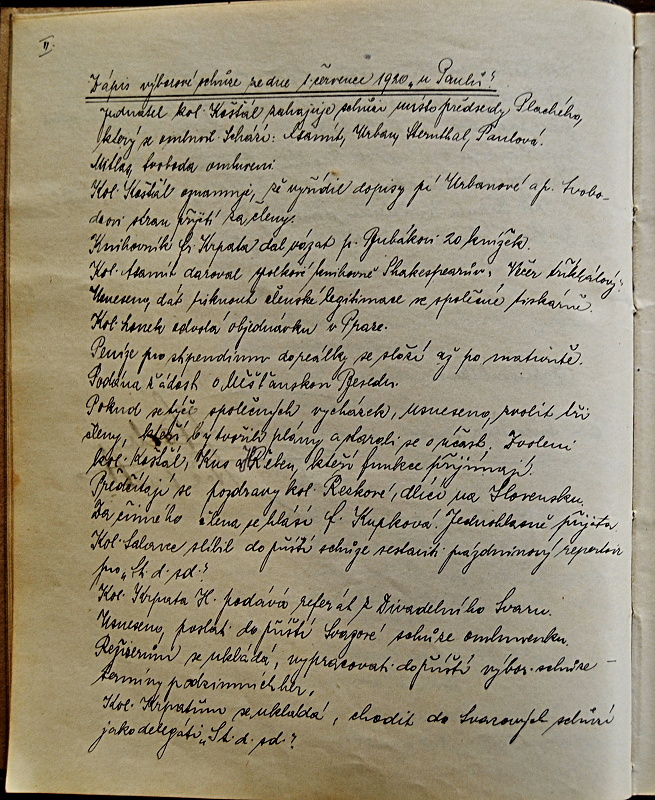 II.
Zápis výborové schůze ze dne 1. července 1920 „u Paulů“.
Jednatel kol. Košťál zahajuje schůzi místo předsedy Plachého,
který se omluvil. Schází: Asamit, Urban, Sternthal, Paulová.
Mitlag, Svoboda omluveni.
Kol. Košťál oznamuje, že vyřídil dopisy pí Urbanové a p. Svobo-
dovi stran přijetí za členy.
Knihovník Fr. Krpata dal vázat p. Bubákovi 20 knížek.
Kol. Asamit daroval spolkové knihovně Shakespearův „Večer tříkrálový“.
Usneseno, dát tisknout členské legitimace ve společné tiskárně.
Kol. Honek odvolá objednávku v Praze.
Peníze pro stipendium do reálky se složí až po maturitě.
Podána žádost o Měšťanskou Besedu.
Pokud se týče společných vycházek, usneseno, zvolit tři
členy, kteří by tvořili plány a starali se o účast. Zvoleni
kol. Košťál, Kus a Řeben, kteří funkce přijímají.
Předčítají se pozdravy kol. Reskové, dlící na Slovensku.
Za činného člena se hlásí f. Kupková. Jednohlasně přijata
Kol. Salavec slíbil do příští schůze sestaviti prázdninový repertoir
pro „St. d. sd.“
Kol. Krpata H. podává referát z Divadelního Svazu.
Usneseno, poslat do příští Svazové schůze omluvenku.
Režisérům se ukládá, vypracovati do příští výbor. schůze –
termíny podzimních her.
Kol. Krpatům se ukládá, chodit do Svazových schůzí
jako delegáti „St. d. sd.“